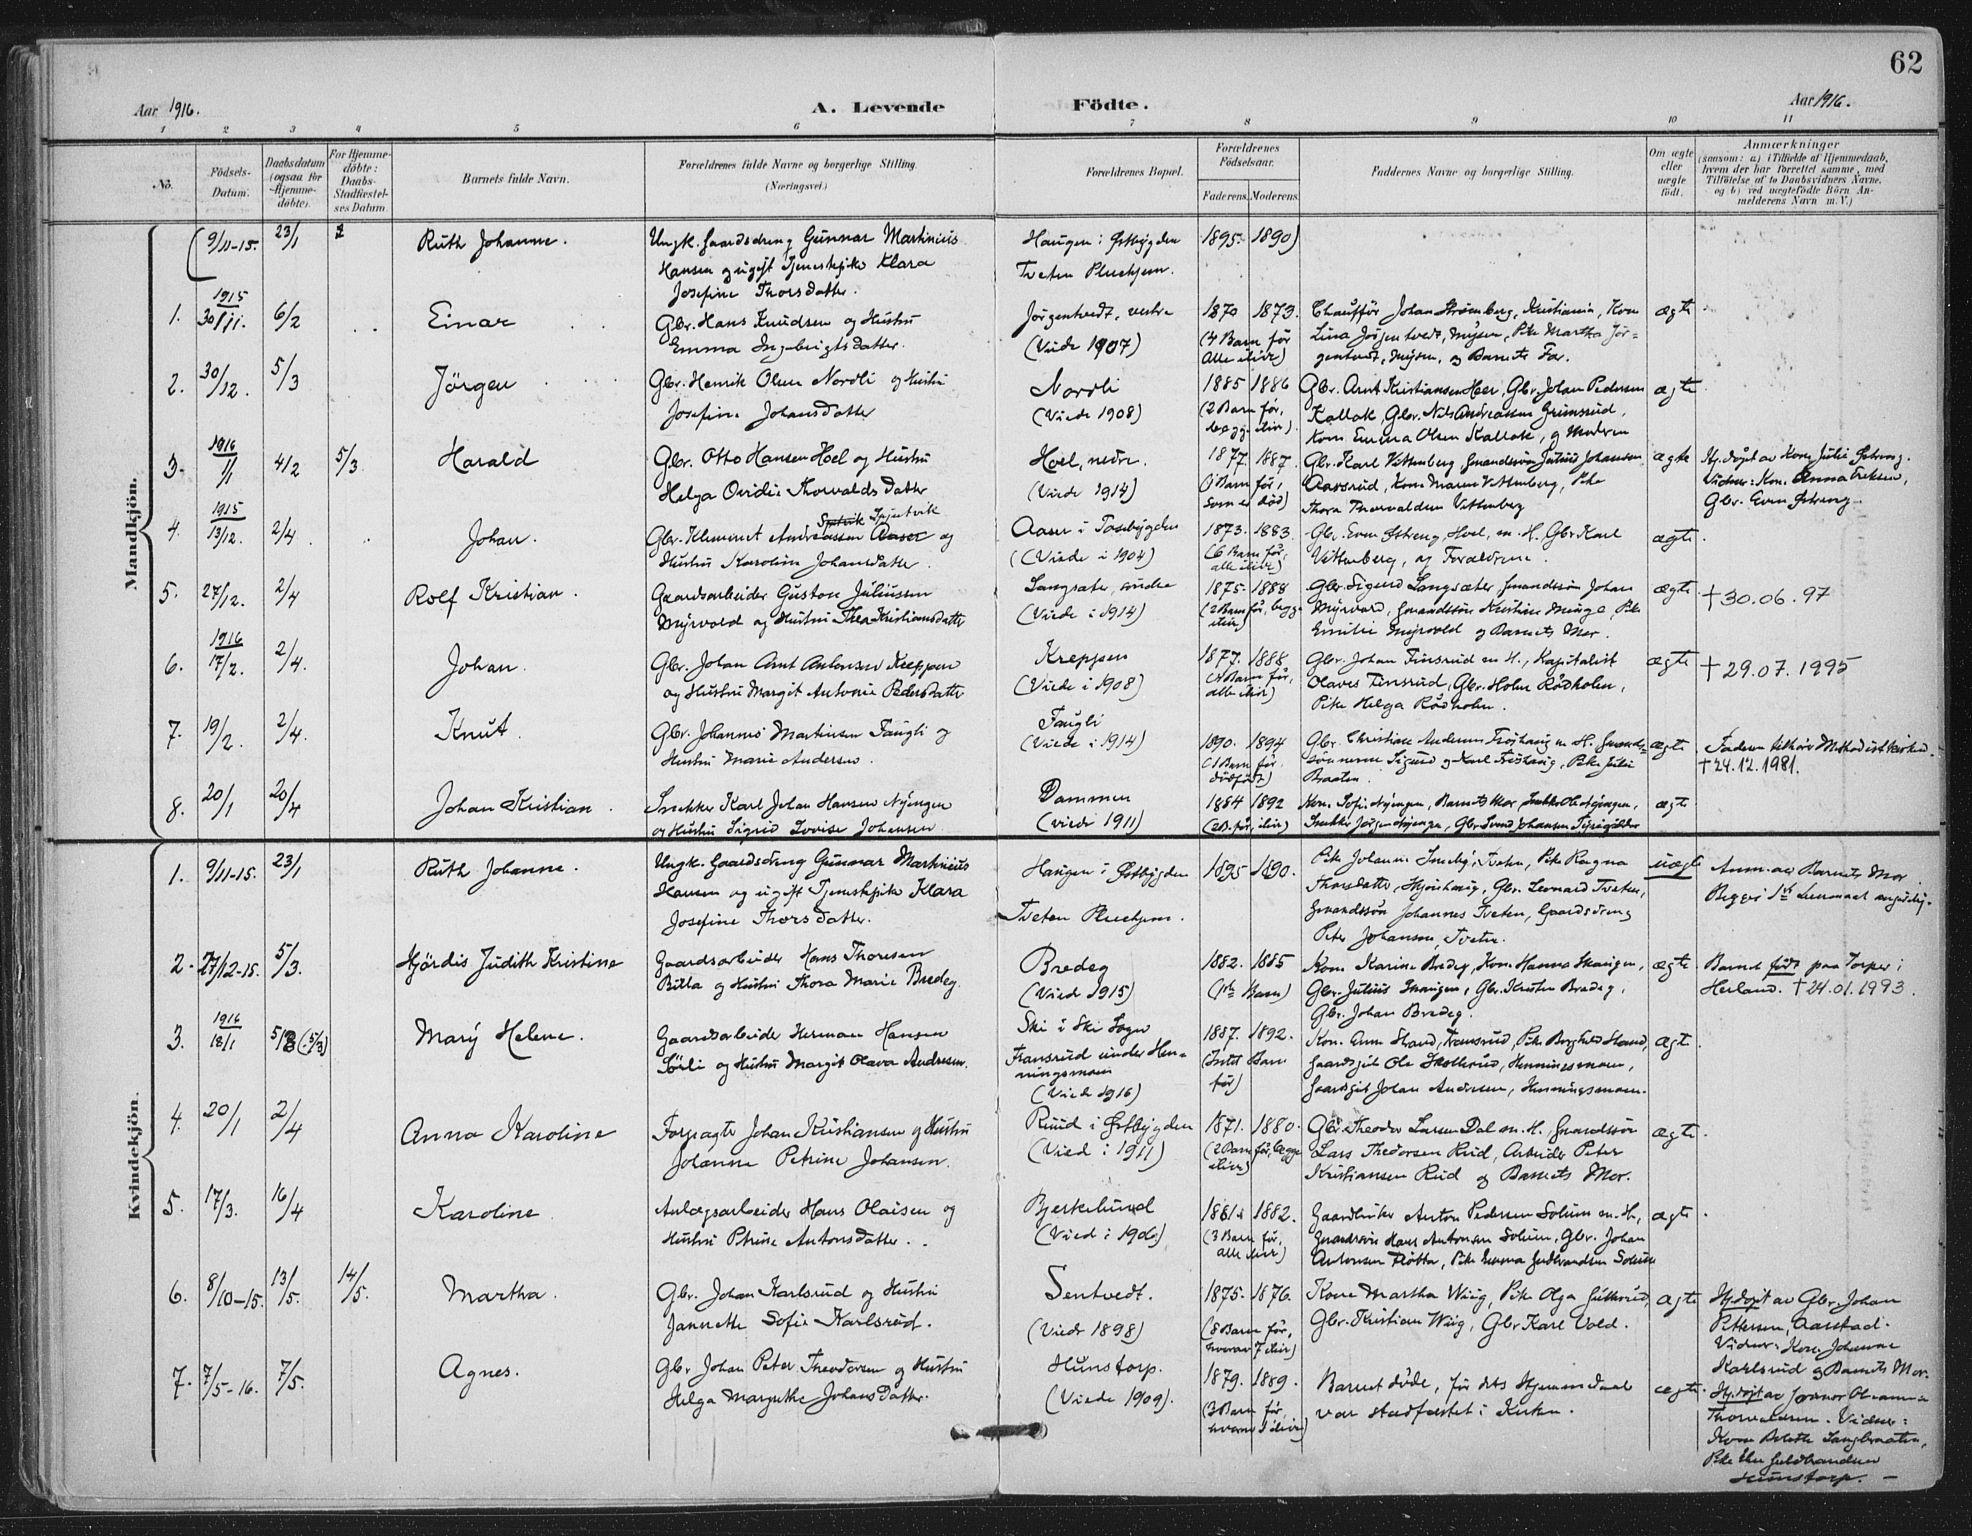 62
Aar 1916.
A. Levende Födte.
Aar 1916.
1 2 3 4 5 6 7 8 9 10 11
No.
Födsels-
Datum.
Daabsdatum
(ogsaa for
Hjemme-
döbte).
For Hjemme-
döbte:
Daabs-
Stadfæstel-
ses Datum.
Barnets fulde Navn.
Forældrenes fulde Navne og borgerlige Stilling.
(Næringsvei.)
Forældrenes Bopæl.
Forældrenes
Födselsaar.
Faderens. Moderens.
Faddernes Navne og borgerlige Stilling.
Om ægte
eller
uægte
födt.
Anmærkninger
(saasom: a) i Tilfælde af Hjemmedaab,
hvem der har forrettet samme, med
Tilföielse af to Daabsvidners Navne,
og b) ved uægtefödte Börn An-
melderens Navn m. V.)
Mandkjön.
9/11-15. 23/1
Ruth Johanne.
Ungk. Gaardsdreng Gunnar Martinius
Hansen og ugift Tjenestepike Klara
Josefine Thorsdatter.
Haugen i Østbygden
Tveten Pleiehjem.
1895. 1890)
1.
1915
30/11. 6/2
Einar
Gbr. Hans Knudsen og Hustru
Emma Ingebrigtsdatter.
Jørgentvedt, vestre
(Viede 1907)
1870 1873.
(4 Barn før
alle ilive)
Chauffør Johan Strømberg, Kristiania, Kone
Lina Jørgentvedt, Mysen, Pike Martha Jør-
gentvedt, Mysen, og Barnets Far.
ægte
2.
30/12. 5/3
Jörgen
Gbr. Henrik Olsen Nordli og Hustru
Josefine Johansdatter
Nordli
(Viede 1908)
1885 1886
(2 Barn før,
begge ilive).
Gbr. Arnt Kristiansen Heer, Gbr. Johan Pedersen
Kallak, Gbr. Nils Andreassen Grimsrud,
Kone Emma Olsen Kallak, og Moderen
ægte
3.
1916
1/1 4/2 5/3
Harald
Gbr. Otto Hansen Hoel og Hustru
Helga Ovidie Thorvaldsdatter
Hoel, nedre.
(Viede 1914)
1877. 1887.
(1 Barn før,
som er død)
Gbr. Karl Vittenberg Gmandssøn Julius Johansen
Aasrud, Kone Maren Vittenberg, Pike
Thora Thorvaldsen Vittenberg
ægte
Hj.døpt av Kone Julie Østreng.
Vidner: Kone Anna Eriksen,
Gbr. Even Østreng.
4.
1915
13/12. 2/4
Johan.
Gbr. Klemmet Andreassen Aaser og
Hustru Karoline Johansdatter.
Aaser i Tosebygden
(Viede i 1904)
1873. 1883.
(6 Barn før,
alle ilive)
Gbr. Even Østreng, Hoel, m. H., Gbr Karl
Vittenberg, og Forældrene.
ægte
5.
27/12. 2/4
Rolf Kristian.
Gaardsarbeider Gustav Juliussen
Myrvold og Hustru Thea Kristiansdatter
Langsæter, søndre
(Viede i 1914)
1875. 1888
(2 Barn før, begge
ilive)
Gbr. Sigurd Langsæter, Gmandssøn Johan
Myrvold, Gmandssøn Kristian Minge, Pike
Emilie Myrvold og Barnets Mor.
ægte
† 30.06.97
6.
1916
17/2. 2/4.
Johan.
Gbr. Johan Arnt Antonsen Kreppen
og Hustru Margit Antonie Pedersdatter
Kreppen
(Viede i 1908)
1877. 1888
(4 Barn før,
alle ilive)
Gbr. Johan Finsrud m H., Kapitalist
Olaves Finsrud, Gbr. Holm Rödholen,
Pike Helga Rödholm.
ægte
† 29.07.1995
7.
19/2. 2/4.
Knut.
Gbr. Johannes Martinsen Faugli og
Hustru Marie Andersen.
Faugli
(Viede i 1914)
1890. 1894
(1 Barn før
dødfødt)
ægte.
Faderen tilhører Methodistkirken.
† 24.12.1981.
8.
20/1 20/4
Johan Kristian.
Snekker Karl Johan Hansen Nyengen
og Hustru Sigrid Lovise Johansen
Dammen
(viede 1911)
1884 1892
(2 B. før, ilive)
ægte
Kvindekjön.
1.
9/11-15. 23/1
Ruth Johanne.
Ungk. Gaardsdreng Gunnar Martinius
Hansen og ugift Tjenestepike Klara
Josefine Thorsdatter.
Haugen i Østbygden
Tveten Pleiehjem.
1895 1890.
Pike Johanne Smeby, Tveten, Pike Ragna
Thorsdatter, Mjønhaug, Gbr. Leonard Tveten,
Gmandssøn Johannes Tveten, Gaardsdreng
Peter Johansen, Tveten.
uægte
Anm. av Barnets Mor
2.
27/12-15. 5/3.
Hjördis Judith Kristine
Gaardsarbeider Hans Thoresen
Billa og Hustru Thora Marie Bredeg.
Bredeg
(Viede 1915)
1882. 1885
(1ste Barn)
Kone Karine Bredeg, Kone Hanna Skaugen,
Gbr. Julius Skaugen, Gbr. Kristen Bredeg,
Gbr. Johan Bredeg.
ægte
Barnet født paa Torper i
Herland. † 24.01.1993.
3.
1916
18/1 5/3 (5/3)
Mary Helene.
Gaardsarbeider Herman Hansen
Sörli og Hustru Margit Olava Andresen.
Ski i Ski Sogn
Fransrud under Hen-
ningsmoen
(Viede 1916)
1887. 1892.
(Intet Barn
før)
Kone Anna Strand, Fransrud, Pike Borghild Strand,
Gaardsgut Ole Skollerud, Henningsmoen,
Gaardsgut Johan Andresen, Henningsmoen.
ægte
4.
20/1 2/4
Anna Karoline
Forpagter Johan Kristiansen og Hustru
Johanne Petrine Johansen.
Ruud i Østbygden
(Vied i 1911)
1871. 1880.
(2 Barn før, begge
ilive)
Gbr. Theodor Larsen Dal m. H., Gmandssøn
Lars Theodorsen Ruud, Arbeider Peter
Kristiansen Ruud og Barnets Mor.
ægte
5.
17/3. 16/4
Karoline
Anlægsarbeider Hans Olaisen og
Hustru Petrine Antonsdatter.
Bjerkelund
(Vied i 1906)
1881. 1882.
(3 Barn før,
alle ilive)
Gaardbruker Anton Pedersen Solum m. H.,
Gmandssøn Hans Antonsen Solum, Gbr. Johan
Antonsen Fløtta, Pike Emma Gudbrandsen Solum
ægte
6.
8/10-15. 13/5. 14/5.
Martha.
Gbr. Johan Karlsrud og Hustru
Jannette Sofie Karlsrud.
Sentvedt.
(Viede 1898)
1875. 1876.
(8 Barn før,
hvorav 7 ilive)
Kone Martha Wiig, Pike Olga Gutterud,
Gbr. Kristian Wiig, Gbr Karl Vold.
ægte
Hj.døpt av Gbr. Johan
Pettersen, Aarstad.
Vidner: Kone Johanne
Karlsrud og Barnets Mor.
7.
7/5-16. 7/5.
Agnes.
Gbr. Johan Peter Theodorsen og Hustru
Helga Margrethe Johansdatter.
Hunstorp.
(Viede 1909).
1879. 1889.
(3 Barn før,
hvorav 1 ilive)
Barnet døde, før dets Hjemmedaab
var stadfæstet i Kirken.
ægte.
Hj.døpt av
Thorvaldsen. Vidner:
Hunstorp.